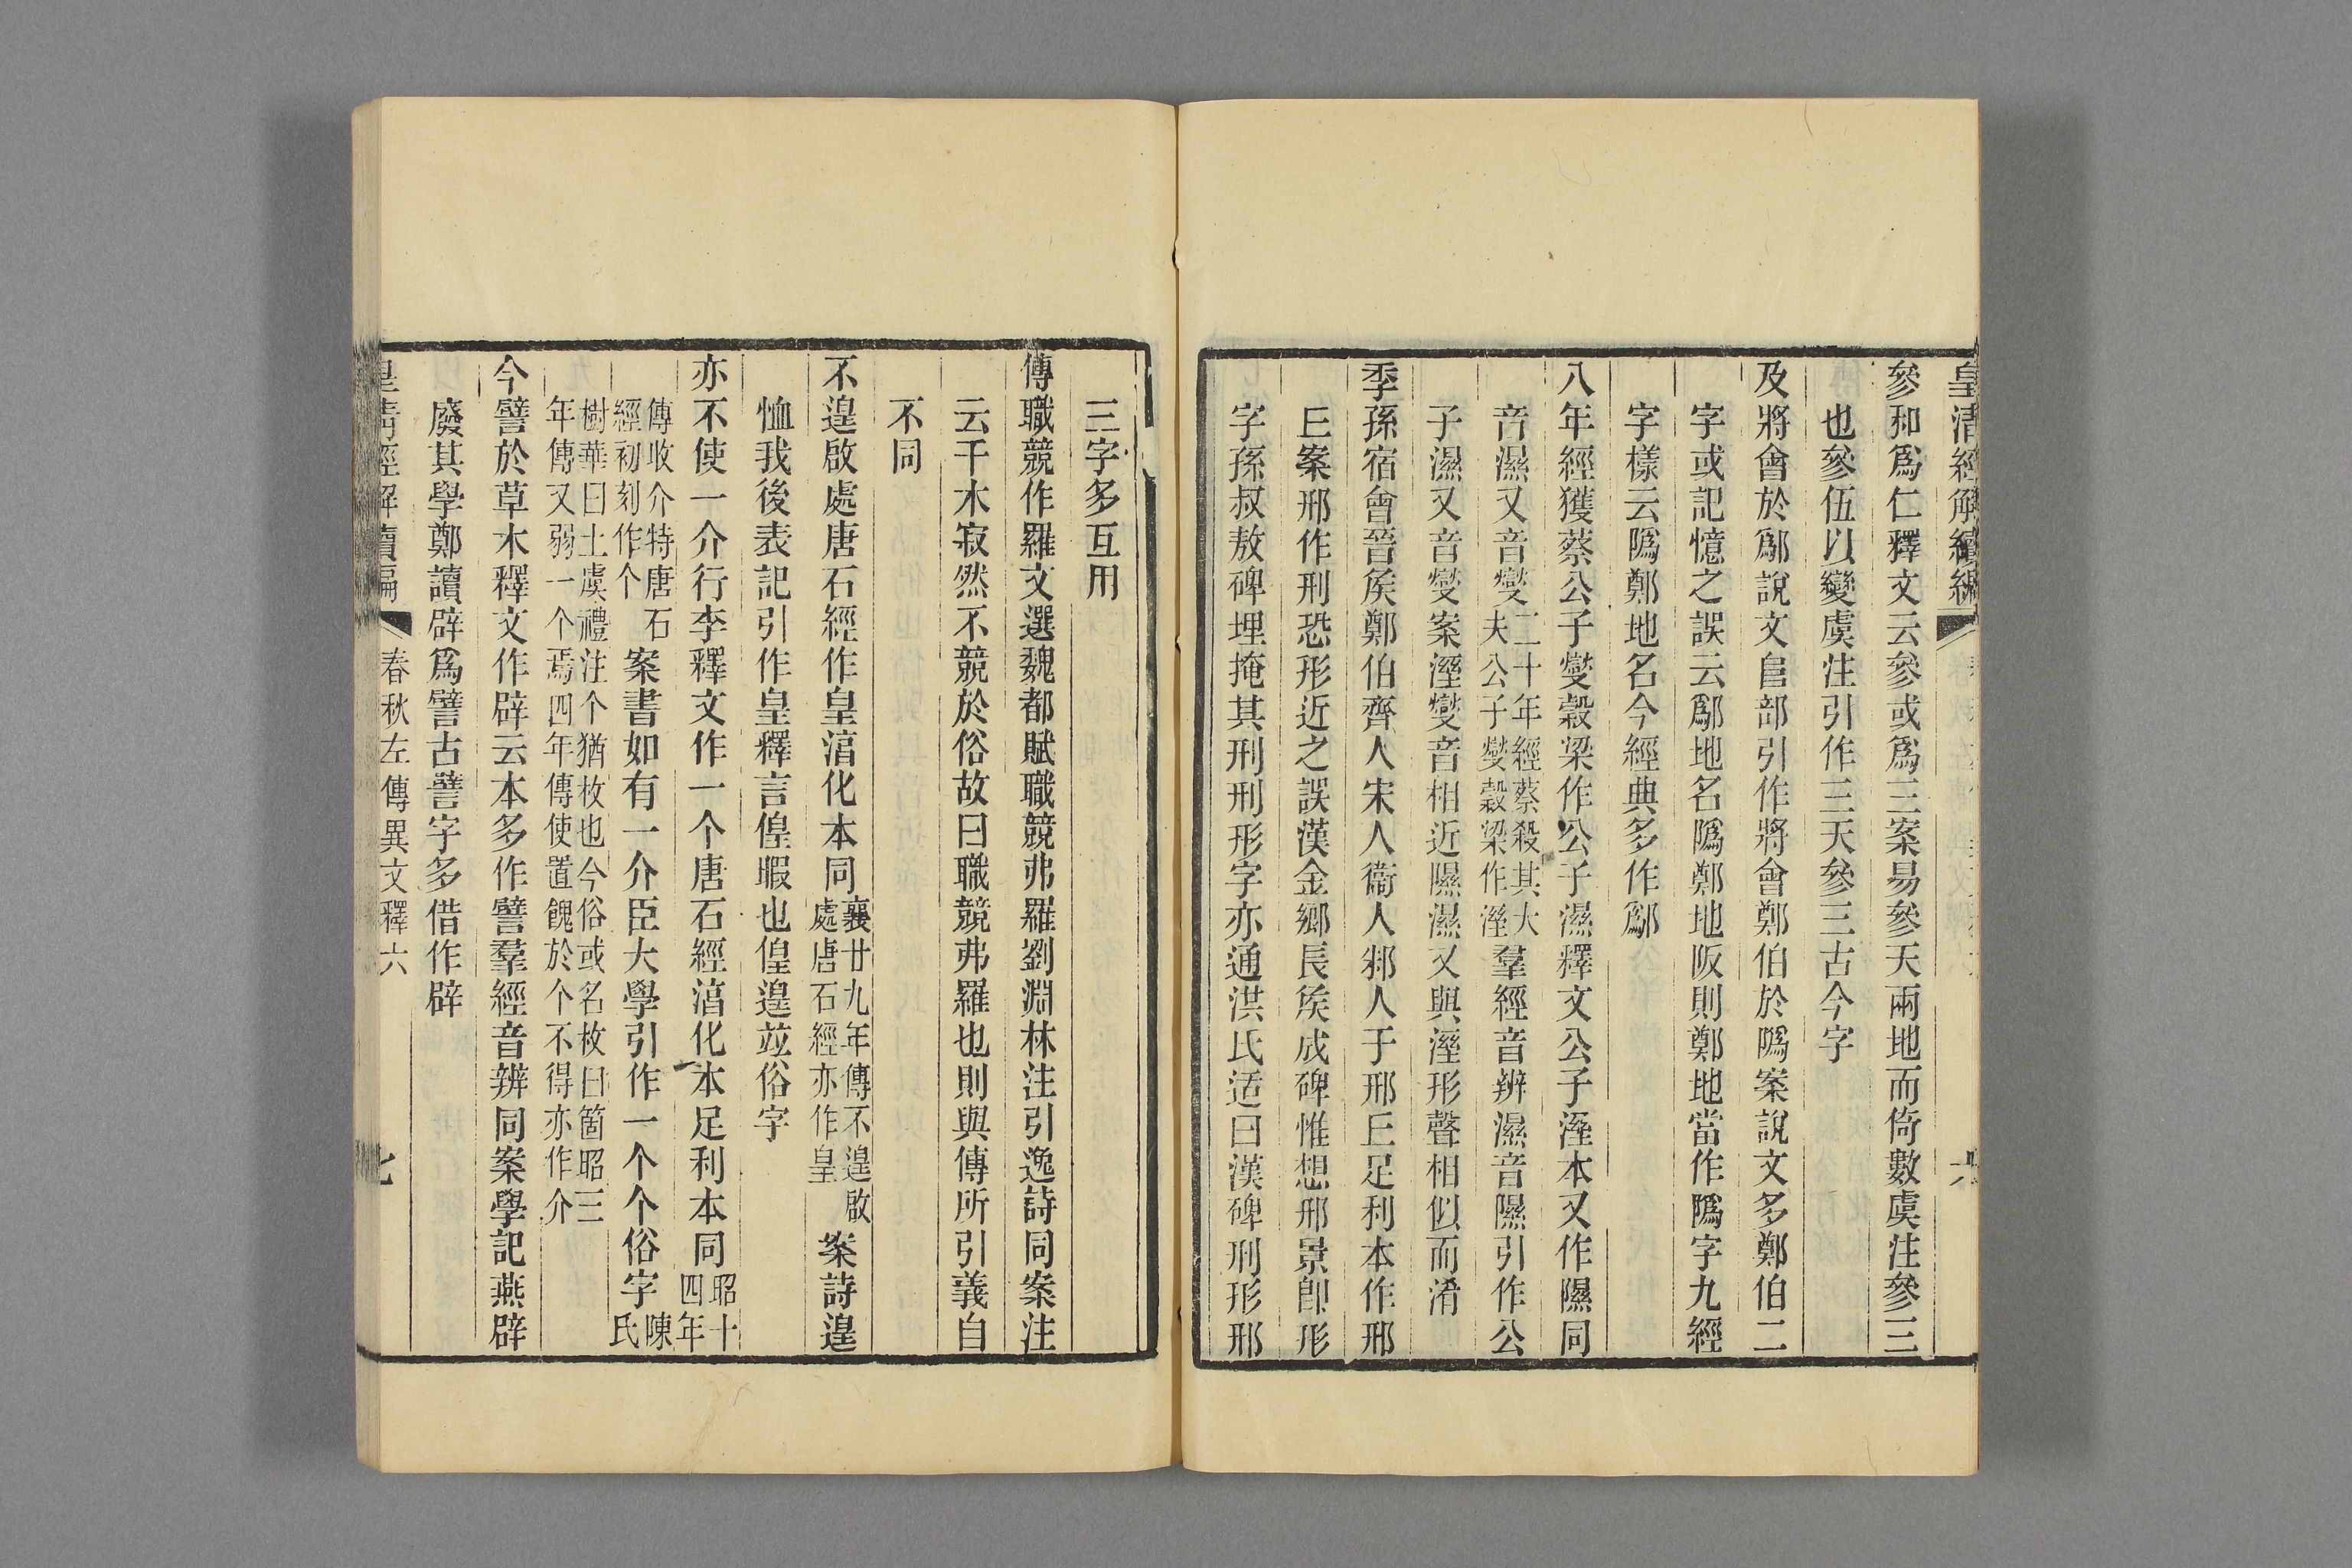 皇清經解續編
六
參卭爲仁釋文云參或爲三案易參天兩地而倚數虞注參三
也參伍以變虞注引作三天參三古今字
及將會於鄬說文𨸏部引作將會鄭伯於隝案說文多鄭伯二
字或記憶之誤云鄬地名隝鄭地阪則鄭地當作隝字九經
字樣云隝鄭地名今經典多作鄬
八年經獲蔡公子燮穀梁作公子濕釋文公子溼本又作隰同
音濕又音燮二十年經蔡殺其大夫公子燮穀梁作溼羣經音辨濕音隰引作公
子濕又音燮案溼燮音相近隰濕又與溼形聲相似而淆
季孫宿會晉矦鄭伯齊人宋人衞人邾人于邢𠀉足利本作邢
𠀉案邢作刑恐形近之誤漢金鄉長矦成碑惟想邢景卽形
字孫叔敖碑埋掩其刑刑形字亦通洪氏适曰漢碑刑形邢
三字多互用
傳職競作羅文選魏都賦職競弗羅劉淵林注引逸詩同案注
云千木寂然不競於俗故曰職競弗羅也則與傳所引義自
不同
不遑啟處唐石經作皇湻化本同襄廿九年傳不遑啟處唐石經亦作皇案詩遑
恤我後表記引作皇釋言偟暇也偟遑竝俗字
亦不使一介行李釋文作一个唐石經湻化本足利本同昭十四年
傳收介特唐石經初刻作个案書如有一介臣大學引作一个个俗字陳氏
樹華曰士虞禮注个猶枚也今俗或名枚曰箇昭三年傳又弱一个焉四年傳使置餽於个不得亦作介
今譬於草木釋文作辟云本多作譬羣經音辨同案學記燕辟
廢其學鄭讀辟爲譬古譬字多借作辟
皇淸經解續編
春秋左傳異文釋六
七